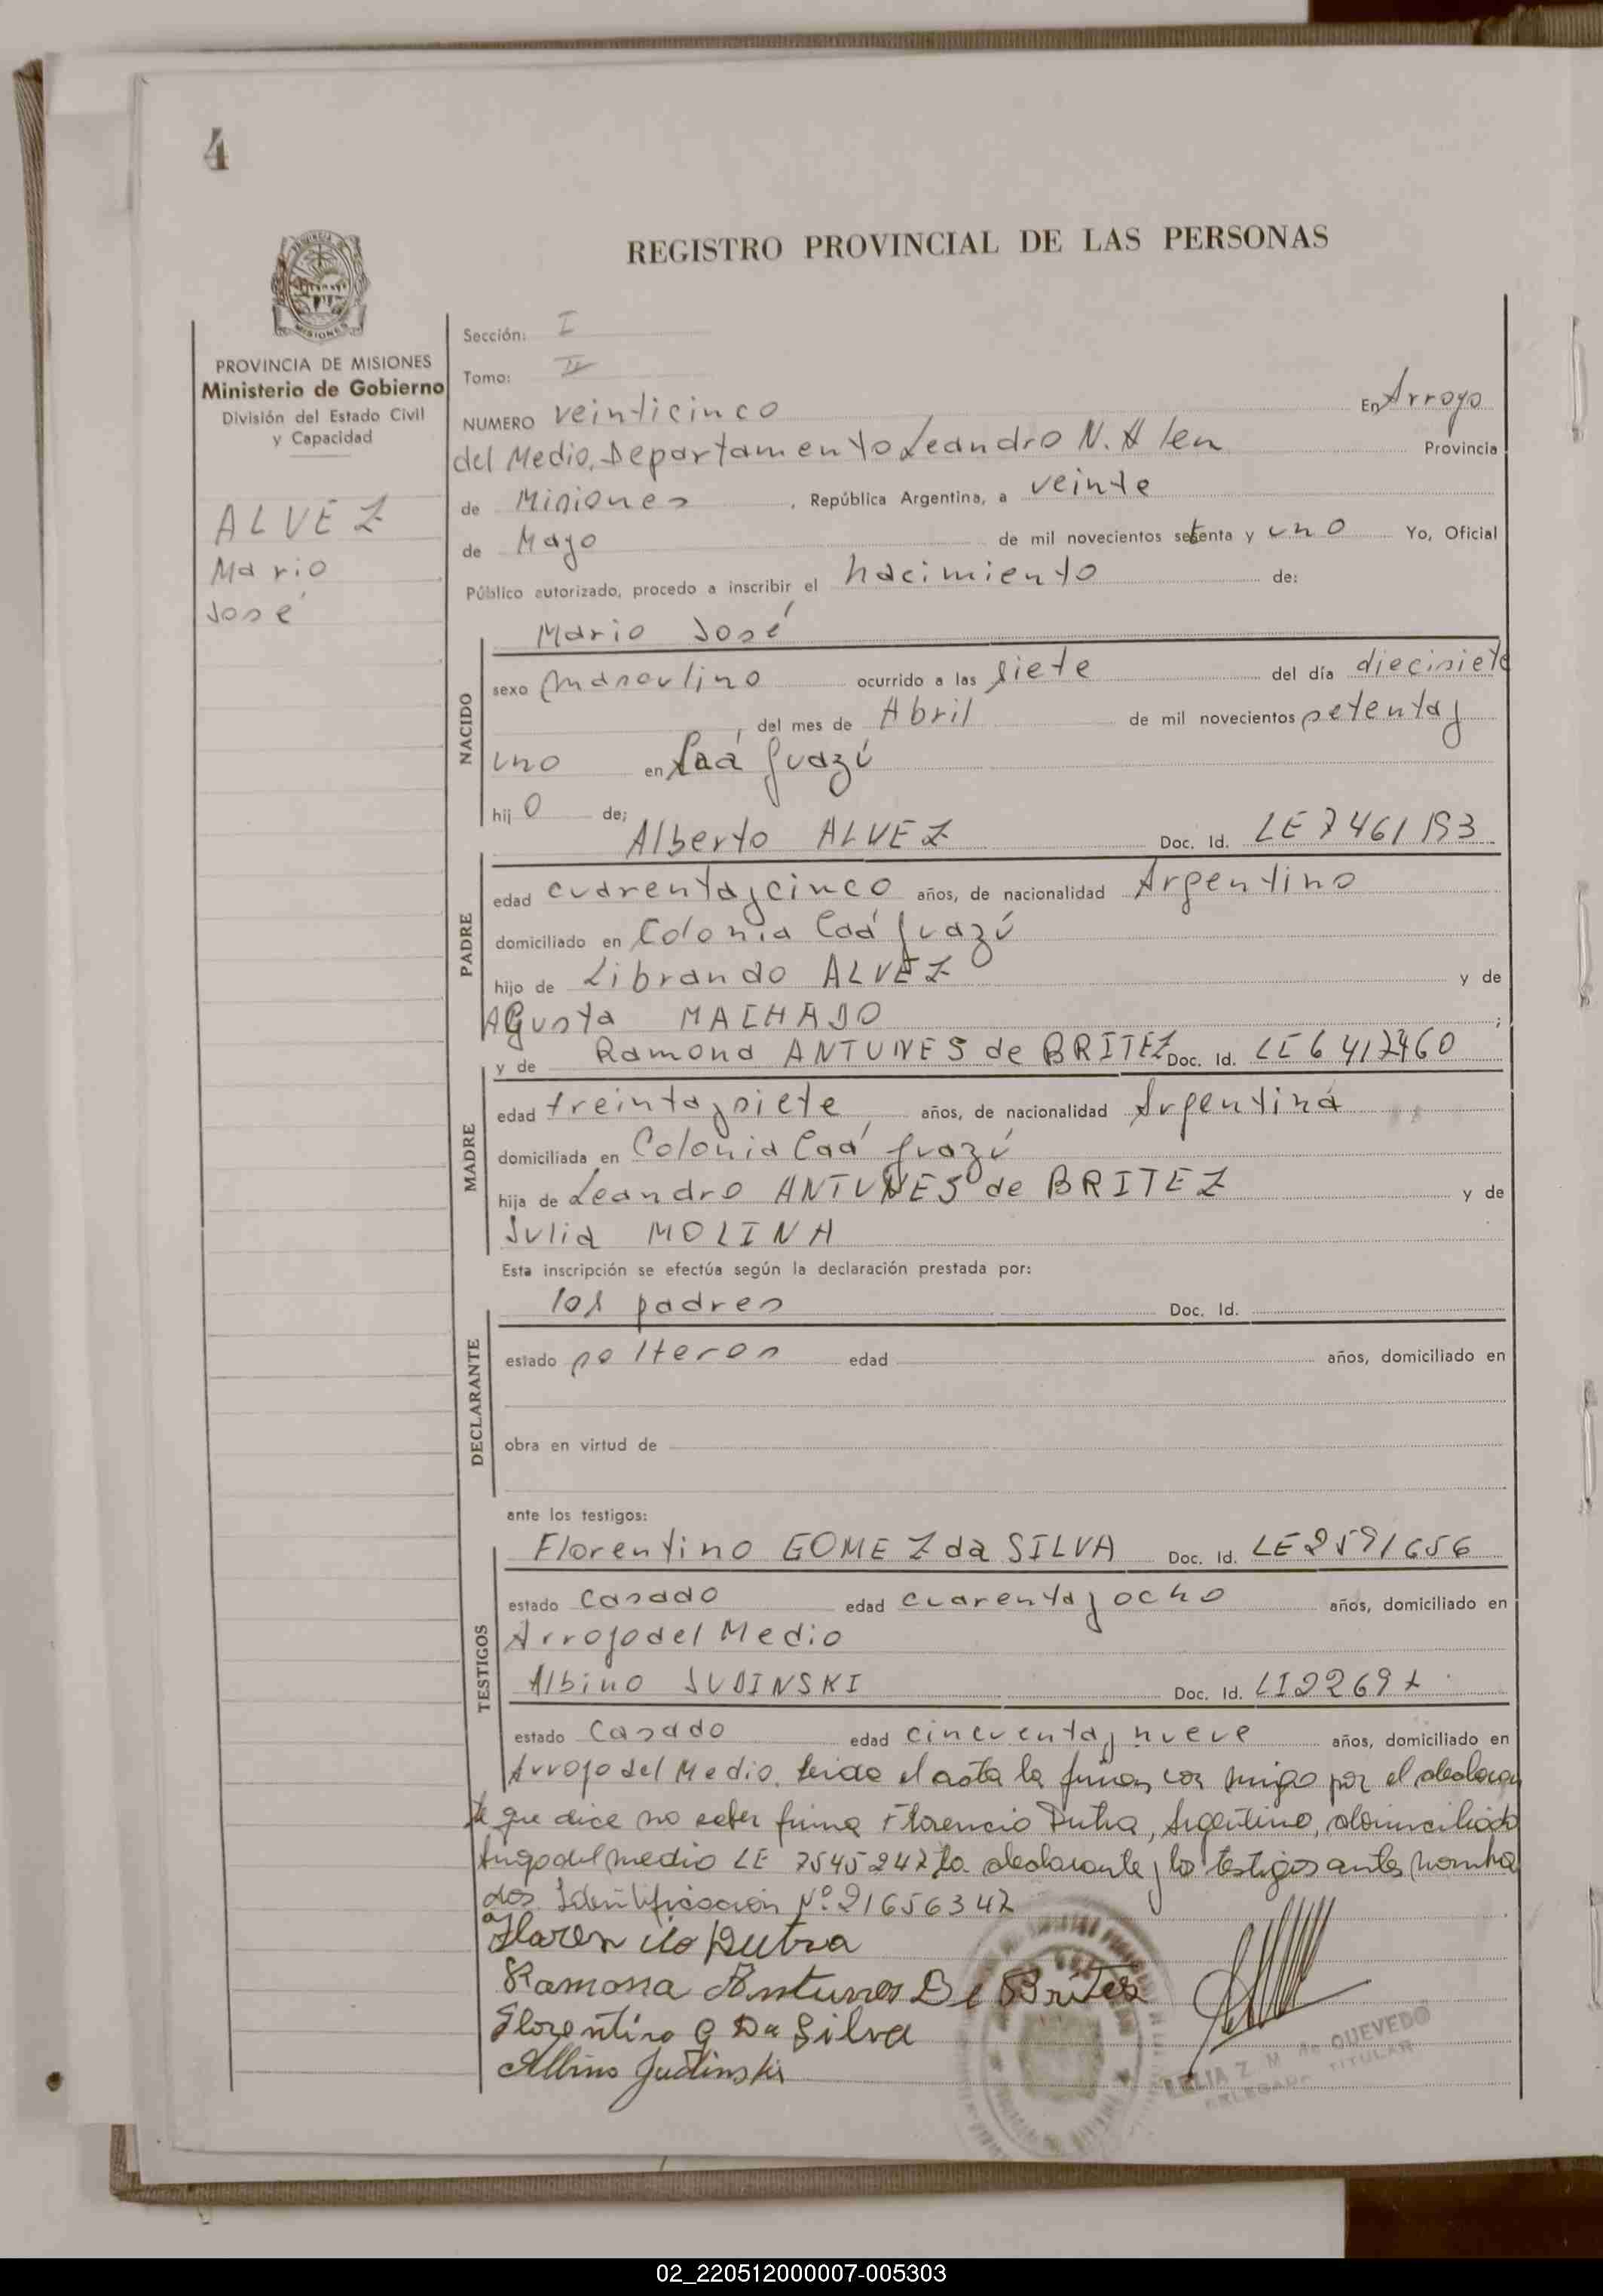 4
REGISTRO PROVINCIAL DE LAS PERSONAS
PROVINCIA DE MISIONES
Ministerio de Gobierno
División del Estado Civil
y Capacidad
ALVEZ
Mario
José
Sección: I
Tomo: IV
NUMERO veinticinco En Arroyo
del Medio, Departamento Leandro N. Alen Provincia
de Misiones, República Argentina, a veinte
de Mayo de mil novecientos setenta y uno Yo, Oficial
Público autorizado, procedo a inscribir el nacimiento de:
Mario José
NACIDO
sexo masculino ocurrido a las siete del día diecisiete
, del mes de Abril de mil novecientos setenta y
uno en Caá Guazú
hijo de;
Alberto ALVEZ Doc. Id. LE 7461193
PADRE
edad cuarenta y cinco años, de nacionalidad Argentino
domiciliado en Colonia Caá Guazú
hijo de Librando ALVEZ y de
AGusta MACHADO ;
y de Ramona ANTUNES de BRITEZ Doc. Id. LE 6412460
MADRE
edad treinta y siete años, de nacionalidad Argentina
domiciliada en Colonia Caá Guazú
hija de Leandro ANTUNES de BRITEZ y de
Julia MOLINA
Esta inscripción se efectúa según la declaración prestada por:
los padres Doc. Id.
DECLARANTE
estado solteros edad años, domiciliado en
obra en virtud de
ante los testigos:
Florentino GOMEZ da SILVA Doc. Id. LE 2591656
TESTIGOS
estado Casado edad cuarenta y ocho años, domiciliado en
Arroyo del Medio
Albino JUDINSKI Doc. Id. LI 2269
estado Casado edad cincuenta y nueve años, domiciliado en
Arroyo del Medio. Leida el acta la firman con migo por el declaran
te que dice no saber firma Florencio Dutra, Argentino, domiciliado
Arroyo del medio LE 7545247 la declarante y los testigos antes nombra
dos. Identificación Nº 21656347
Florencio Dutra
Ramona Antunes De Brites
Florentino G Da Silva
Albino Judinski
ELIA Z. M. de QUEVEDO
TITULAR
02_220512000007-005303